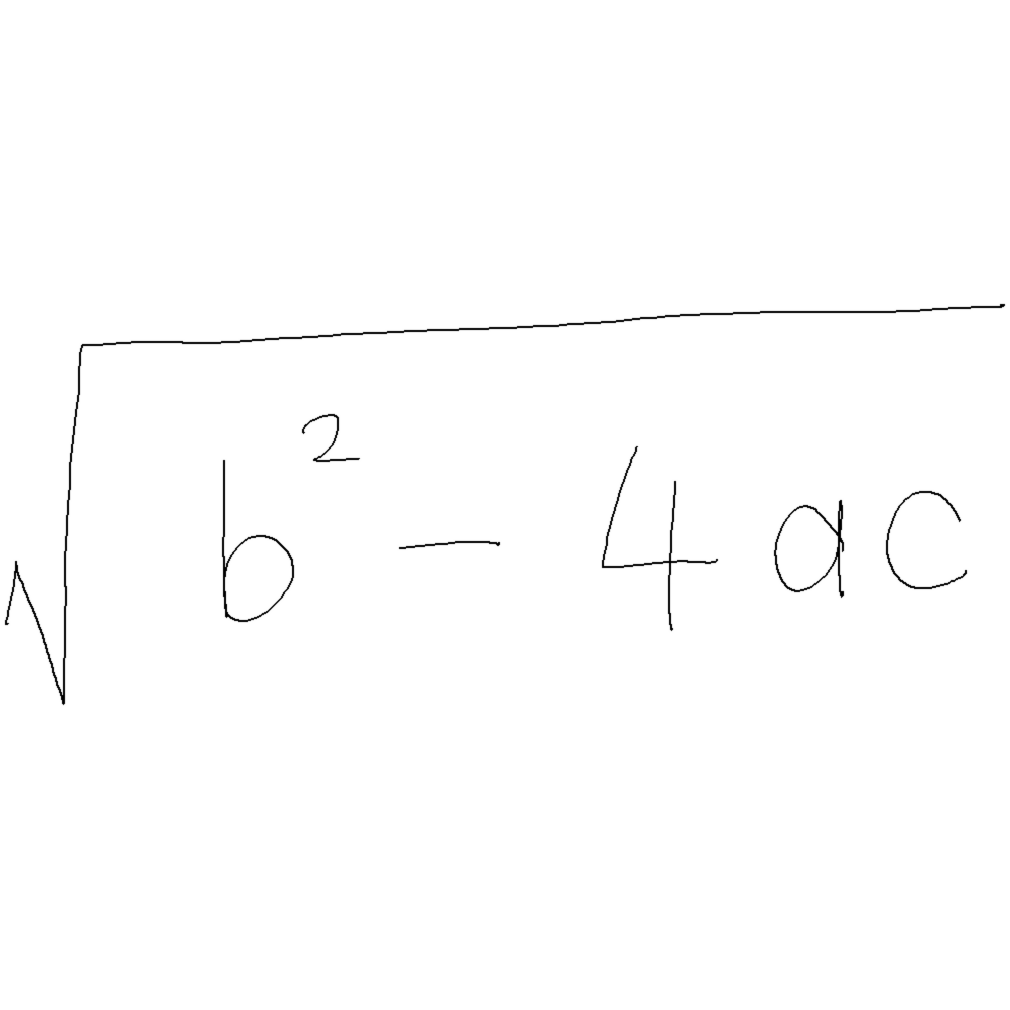 √(b² − 4ac)